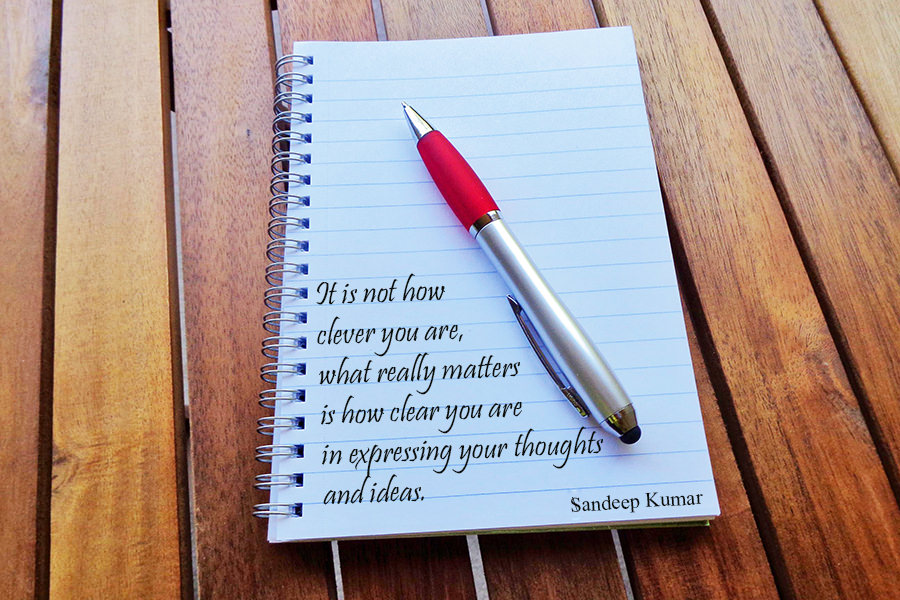 It is not how
clever you are,
what really matters
is how clear you are
in expressing your thoughts
and ideas.
Sandeep Kumar